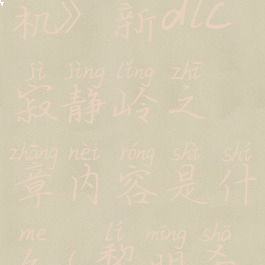 机》 新dlc
jì jìng lǐng zhī
寂静岭之
zhāng nèi róng shì shí
章内容是什
me lí míng shā
么（黎明杀